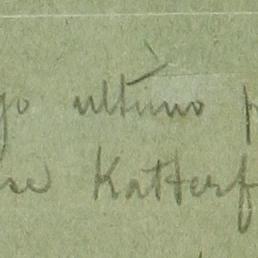 go ultimo p
se Katterf